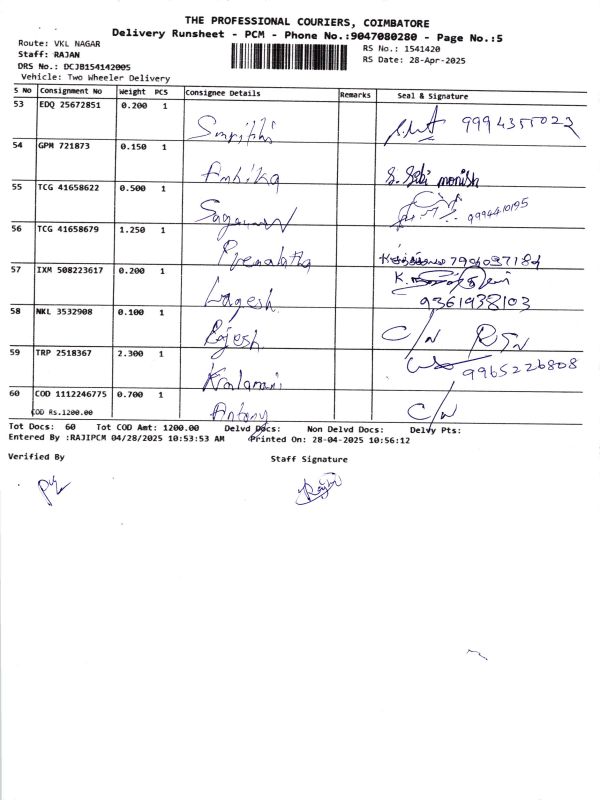 THE PROFESSIONAL COURIERS, COIMBATORE
Delivery Runsheet - PCM - Phone No.:9047080280 - Page No.:5
Route: VKL NAGAR
Staff: RAJAN
DRS No.: DCJB154142005
Vehicle: Two Wheeler Delivery
RS No.: 1541420
RS Date: 28-Apr-2025
S No Consignment No Weight PCS Consignee Details Remarks Seal & Signature
53 EDQ 25672851 0.200 1 9994355023
54 GPM 721873 0.150 1 Ambika S. Sebi monish
55 TCG 41658622 0.500 1 9994410195
56 TCG 41658679 1.250 1 Premalatha
57 IXM 508223617 0.200 1 Lagesh K. Devi
9361938103
58 NKL 3532908 0.100 1 Rajesh C/N RSN
59 TRP 2518367 2.300 1 9965226808
60 COD 1112246775 0.700 1 Antony C/N
COD Rs.1200.00
Tot Docs: 60 Tot COD Amt: 1200.00 Delvd Docs: Non Delvd Docs: Delvy Pts:
Entered By :RAJIPCM 04/28/2025 10:53:53 AM Printed On: 28-04-2025 10:56:12
Verified By Staff Signature